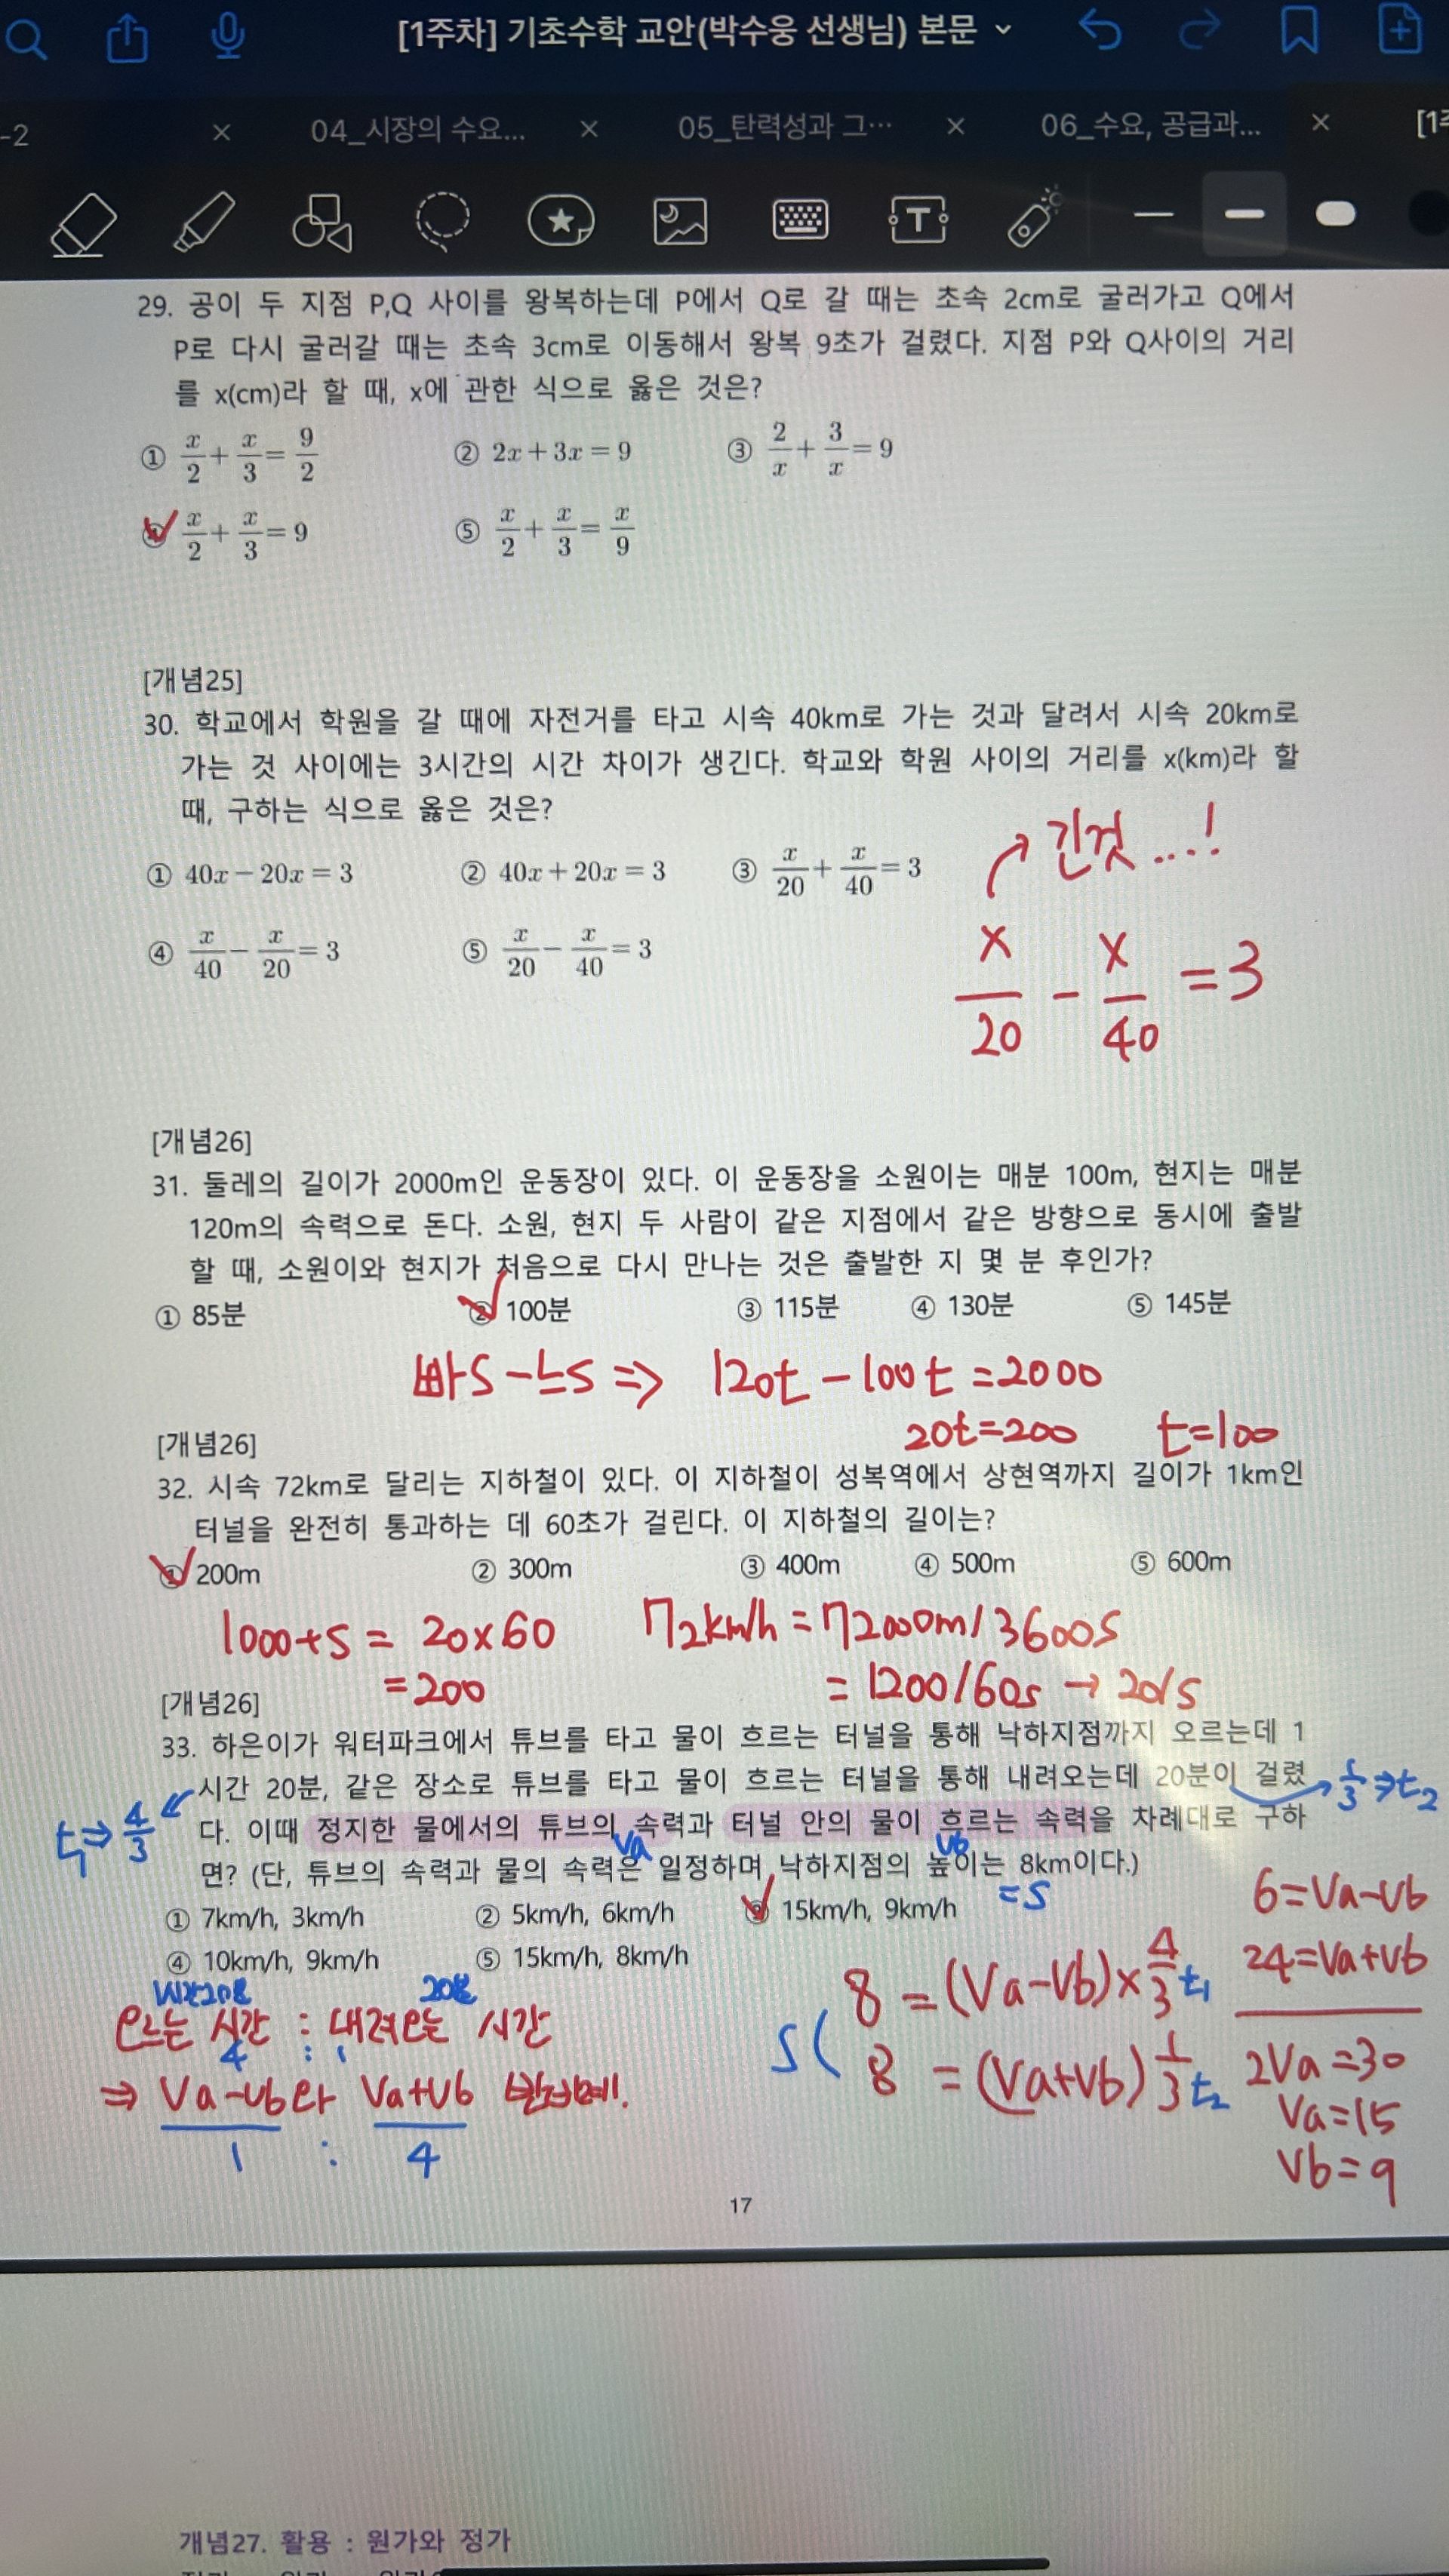 [1주차] 기초수학 교안(박수웅 선생님) 본문
-2
04_시장의 수요...
05_탄력성과 그...
06_수요, 공급과...
29. 공이 두 지점 P,Q 사이를 왕복하는데 P에서 Q로 갈 때는 초속 2cm로 굴러가고 Q에서
P로 다시 굴러갈 때는 초속 3cm로 이동해서 왕복 9초가 걸렸다. 지점 P와 Q사이의 거리
를 x(cm)라 할 때, x에 관한 식으로 옳은 것은?
① x/2 + x/3 = 9/2 ② 2x+3x=9 ③ 2/x + 3/x = 9
④ x/2 + x/3 = 9 ⑤ x/2 + x/3 = x/9
[개념25]
30. 학교에서 학원을 갈 때에 자전거를 타고 시속 40km로 가는 것과 달려서 시속 20km로
가는 것 사이에는 3시간의 시간 차이가 생긴다. 학교와 학원 사이의 거리를 x(km)라 할
때, 구하는 식으로 옳은 것은?
① 40x-20x=3 ② 40x+20x=3 ③ x/20 + x/40 = 3
긴것...!
④ x/40 - x/20 = 3 ⑤ x/20 - x/40 = 3
x/20 - x/40 = 3
[개념26]
31. 둘레의 길이가 2000m인 운동장이 있다. 이 운동장을 소원이는 매분 100m, 현지는 매분
120m의 속력으로 돈다. 소원, 현지 두 사람이 같은 지점에서 같은 방향으로 동시에 출발
할 때, 소원이와 현지가 처음으로 다시 만나는 것은 출발한 지 몇 분 후인가?
① 85분 ② 100분 ③ 115분 ④ 130분 ⑤ 145분
빠S-느S ⇒ 120t-100t=2000
20t=200 t=100
[개념26]
32. 시속 72km로 달리는 지하철이 있다. 이 지하철이 성복역에서 상현역까지 길이가 1km인
터널을 완전히 통과하는 데 60초가 걸린다. 이 지하철의 길이는?
① 200m ② 300m ③ 400m ④ 500m ⑤ 600m
1000+s = 20x60 72km/h = 72000m/3600s
=200 = 1200/60s → 20/s
[개념26]
33. 하은이가 워터파크에서 튜브를 타고 물이 흐르는 터널을 통해 낙하지점까지 오르는데 1
시간 20분, 같은 장소로 튜브를 타고 물이 흐르는 터널을 통해 내려오는데 20분이 걸렸
1/3 ⇒ t2
t1 ⇒ 4/3
다. 이때 정지한 물에서의 튜브의 속력과 터널 안의 물이 흐르는 속력을 차례대로 구하
Va Vb
면? (단, 튜브의 속력과 물의 속력은 일정하며 낙하지점의 높이는 8km이다.)
=S
① 7km/h, 3km/h ② 5km/h, 6km/h ③ 15km/h, 9km/h
④ 10km/h, 9km/h ⑤ 15km/h, 8km/h
6=Va-Vb
24=Va+Vb
2Va=30
Va=15
Vb=9
S( 8 = (Va-Vb)x4/3 t1
8 = (Va+Vb)1/3 t2
1시간20분 20분
오르는 시간 : 내려오는 시간
4 : 1
⇒ Va-Vb와 Va+Vb 반비례!
1 : 4
17
개념27. 활용 : 원가와 정가